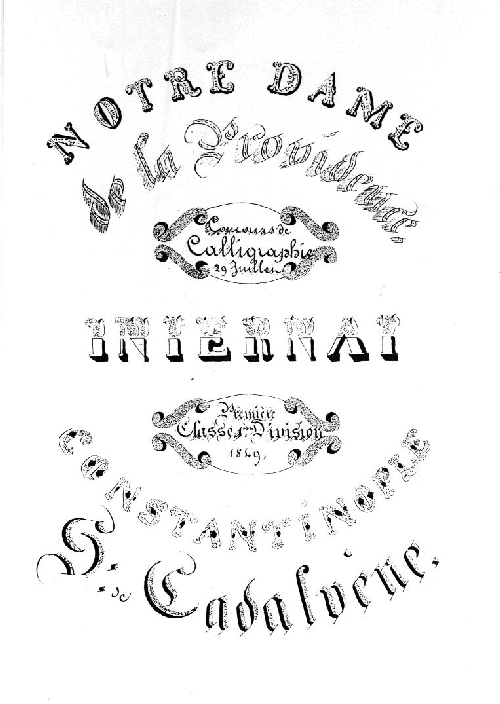 NOTRE DAME
de la Providence
Concours de
Calligraphie
29 Juillet
INTERNAT
Première
Classe 1re Division
1849.
CONSTANTINOPLE
S. de Cadalvène.